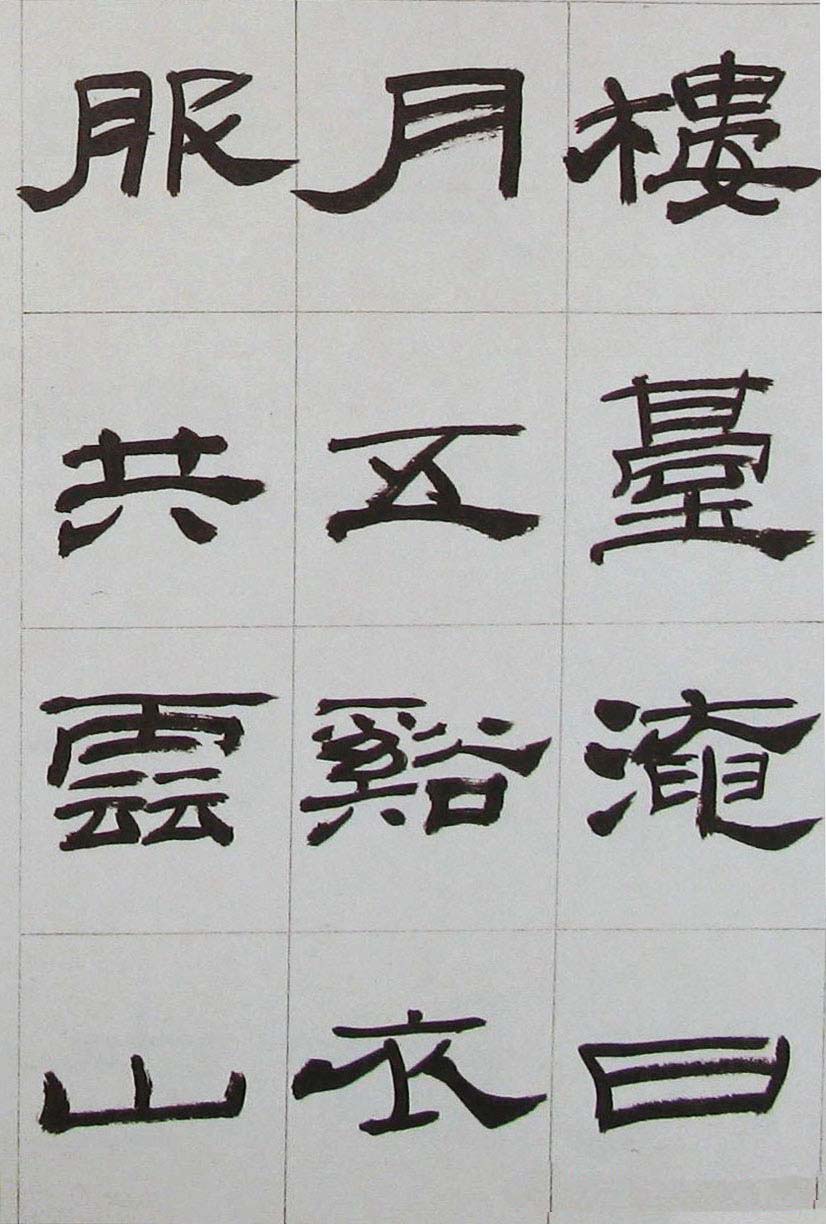 樓臺淹日
月五谿衣
服共雲山